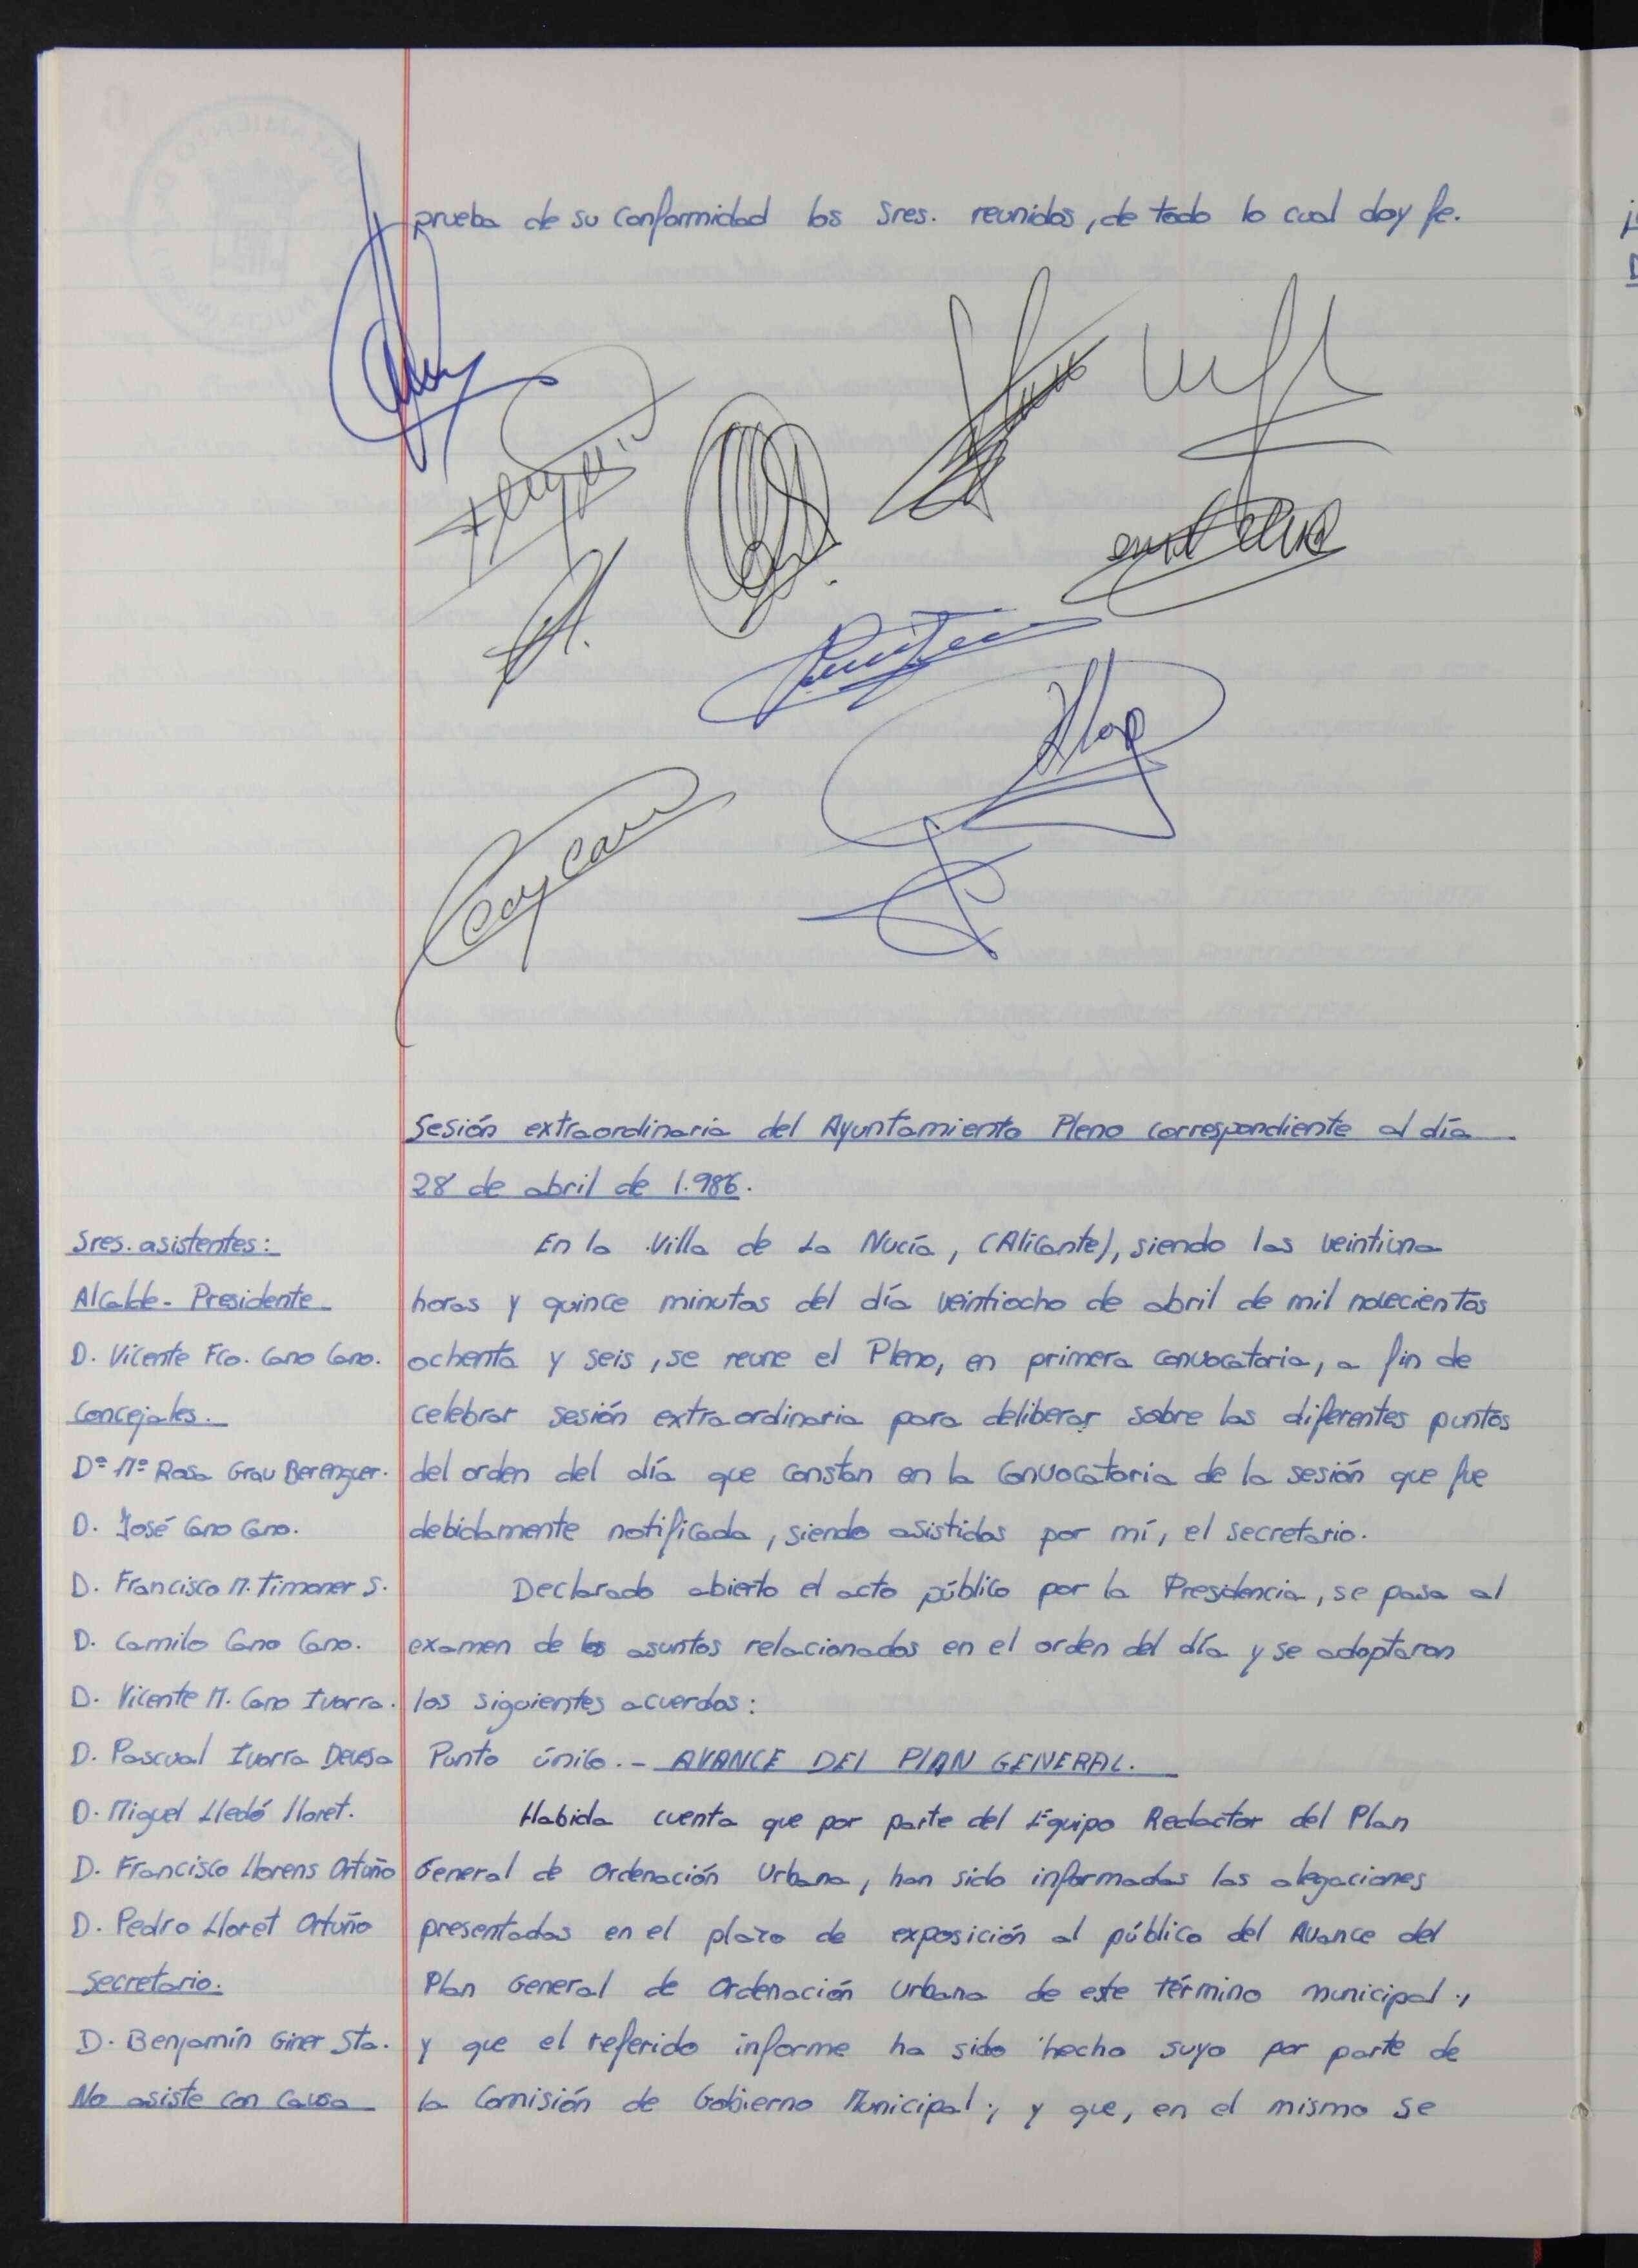 prueba de su conformidad los Sres. reunidos, de todo lo cual doy fe.
Sesión extraordinaria del Ayuntamiento Pleno correspondiente al día
28 de abril de 1.986.
Sres. asistentes:
Alcalde-Presidente
D. Vicente Fco. Cano Cano.
Concejales.
Dª Mª Rosa Grau Berenguer.
D. José Cano Cano.
D. Francisco M. Timoner S.
D. Camilo Cano Cano.
D. Vicente M. Cano Ivorra.
D. Pascual Ivorra Devesa
D. Miguel Lledó Lloret.
D. Francisco Llorens Ortuño
D. Pedro Lloret Ortuño
Secretario.
D. Benjamín Giner Sta.
No asiste con causa
En la Villa de La Nucía, (Alicante), siendo las veintiuna
horas y quince minutos del día veintiocho de abril de mil novecientos
ochenta y seis, se reune el Pleno, en primera convocatoria, a fin de
celebrar sesión extraordinaria para deliberar sobre los diferentes puntos
del orden del día que constan en la convocatoria de la sesión que fue
debidamente notificada, siendo asistidos por mí, el secretario.
Declarado abierto el acto público por la Presidencia, se pasa al
examen de los asuntos relacionados en el orden del día y se adoptaron
los siguientes acuerdos:
Punto único.- AVANCE DEL PLAN GENERAL.
Habida cuenta que por parte del Equipo Redactor del Plan
General de Ordenación Urbana, han sido informadas las alegaciones
presentadas en el plazo de exposición al público del Avance del
Plan General de Ordenación Urbana de este término municipal;
y que el referido informe ha sido hecho suyo por parte de
la Comisión de Gobierno Municipal; y que, en el mismo se